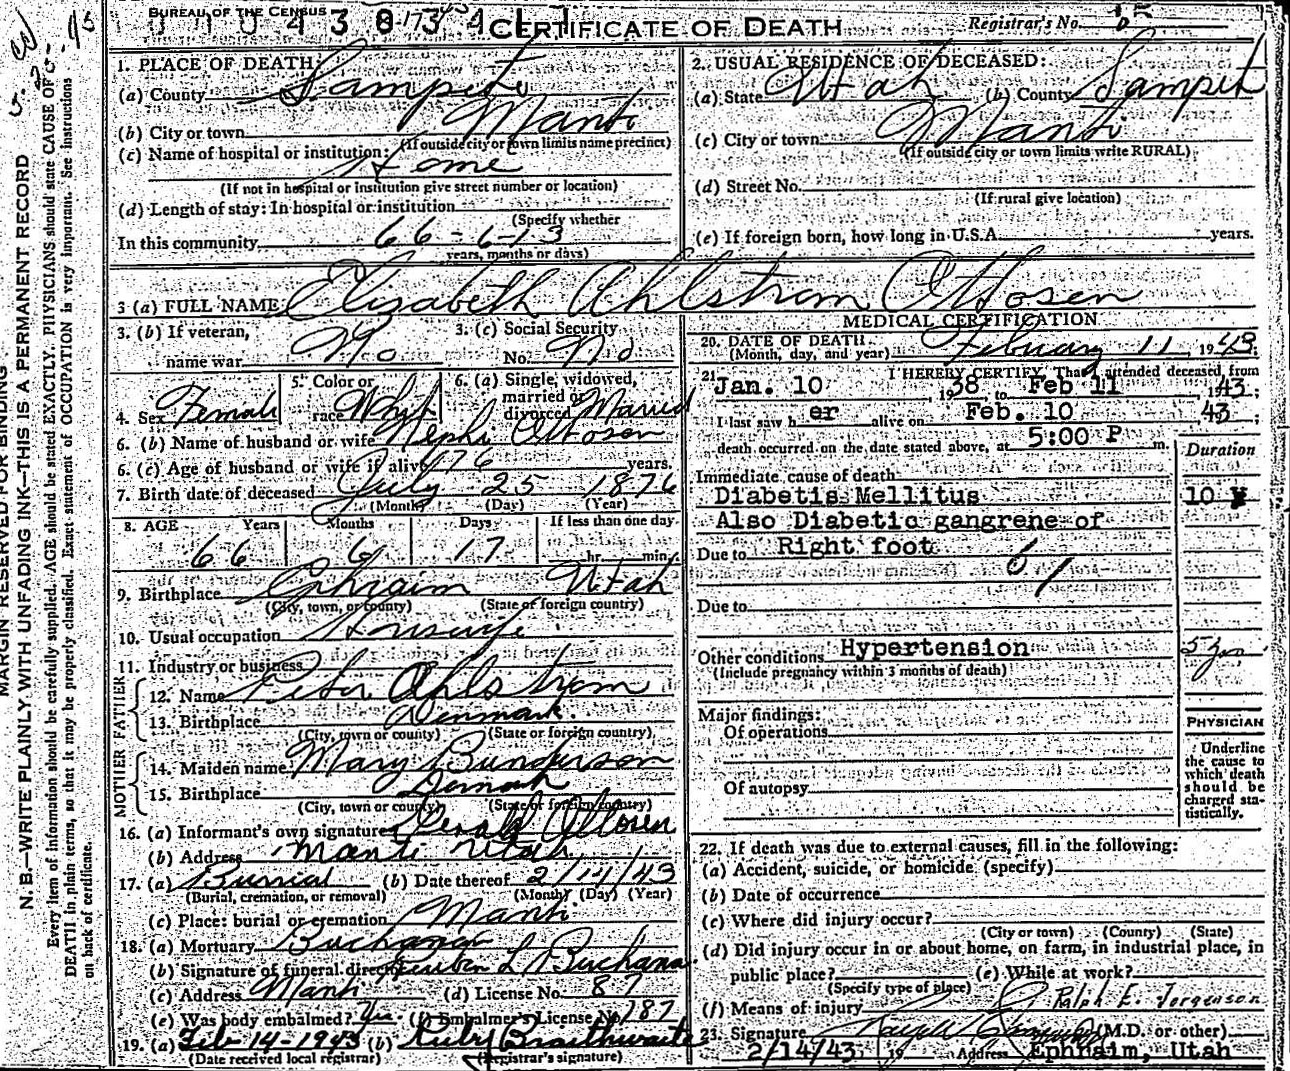 BUREAU OF THE CENSUS
CERTIFICATE OF DEATH
Registrar's No. 15
MARGIN RESERVED FOR BINDING
N. B.—WRITE PLAINLY, WITH UNFADING INK—THIS IS A PERMANENT RECORD
Every item of information should be carefully supplied. AGE should be stated EXACTLY. PHYSICIANS should state CAUSE OF
DEATH in plain terms, so that it may be properly classified. Exact statement of OCCUPATION is very important. See instructions
on back of certificate.
1. PLACE OF DEATH:
(a) County Sampete
(b) City or town Manti
(If outside city or town limits name precinct)
(c) Name of hospital or institution:
Home
(If not in hospital or institution give street number or location)
(d) Length of stay: In hospital or institution
(Specify whether
In this community 66-6-13
years, months or days)
2. USUAL RESIDENCE OF DECEASED:
(a) State Utah (b) County Sampete
(c) City or town Manti
(If outside city or town limits write RURAL)
(d) Street No.
(If rural give location)
(e) If foreign born, how long in U.S.A. years.
3 (a) FULL NAME Elizabeth Ahlstrom Ottosen
3. (b) If veteran,
name war No
3. (c) Social Security
No. No
4. Sex Female
5. Color or
race White
6. (a) Single, widowed,
married or
divorced Married
6. (b) Name of husband or wife Nephi Ottosen
6. (c) Age of husband or wife if alive 76 years.
7. Birth date of deceased July 25 1876
(Month) (Day) (Year)
8. AGE Years Months Days If less than one day
66 6 17 hr. min.
9. Birthplace Ephraim Utah
(City, town, or county) (State or foreign country)
10. Usual occupation Housewife
11. Industry or business
FATHER
12. Name Peter Ahlstrom
13. Birthplace Denmark.
(City, town or county) (State or foreign country)
MOTHER
14. Maiden name Mary Bunderson
15. Birthplace
(City, town or county) (State or foreign country)
16. (a) Informant's own signature Gerald Ottosen
(b) Address Manti Utah
17. (a) Burrial (b) Date thereof 2/14/43
(Burial, cremation, or removal) (Month) (Day) (Year)
(c) Place: burial or cremation Manti
18. (a) Mortuary Buchanan
(b) Signature of funeral director Reuben L Buchanan
(c) Address Manti (d) License No. 87
(e) Was body embalmed? Yes (f) Embalmer's License No. 187
19. (a) Feb-14-1943 (b) Ruby Braithwaite
(Date received local registrar) (Registrar's signature)
MEDICAL CERTIFICATION
20. DATE OF DEATH
(Month, day, and year) February 11, 1943;
21. I HEREBY CERTIFY, That I attended deceased from
Jan. 10 1938 to Feb 11 1943;
I last saw her alive on Feb. 10 43;
death occurred on the date stated above, at 5:00 P m.
Duration
Immediate cause of death
Diabetis Mellitus 10 Y
Also Diabetic gangrene of
Due to Right foot
61
Due to
Other conditions Hypertension 5 yrs
(Include pregnancy within 3 months of death)
Major findings:
Of operations
Of autopsy
PHYSICIAN
Underline
the cause to
which death
should be
charged sta-
tistically.
22. If death was due to external causes, fill in the following:
(a) Accident, suicide, or homicide (specify)
(b) Date of occurrence
(c) Where did injury occur?
(City or town) (County) (State)
(d) Did injury occur in or about home, on farm, in industrial place, in
public place? (e) While at work?
(Specify type of place)
(f) Means of injury
G. Ralph E. Jorgenson
23. Signature (M.D. or other)
2/14/43 19 Address Ephraim, Utah